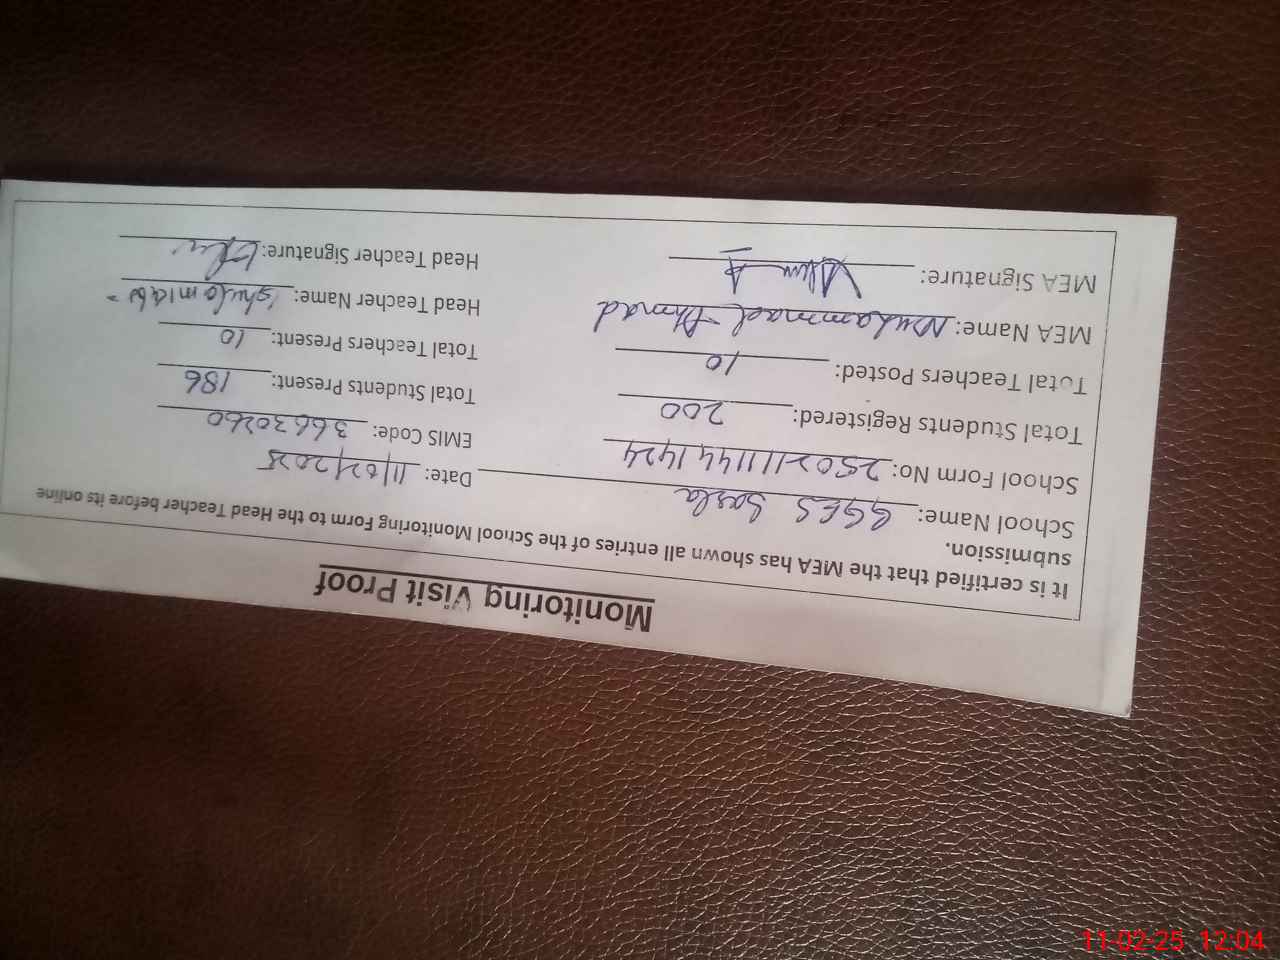 Monitoring Visit Proof
It is certified that the MEA has shown all entries of the School Monitoring Form to the Head Teacher before its online
submission.
School Name: GGES Date: 11/02/2025
School Form No: 2502111144 1424 EMIS Code: 36630260
Total Students Registered: 200 Total Students Present: 186
Total Teachers Posted: 10 Total Teachers Present: 10
MEA Name: Muhammad Ahmad Head Teacher Name:
MEA Signature: Head Teacher Signature:
11-02-25 12:04